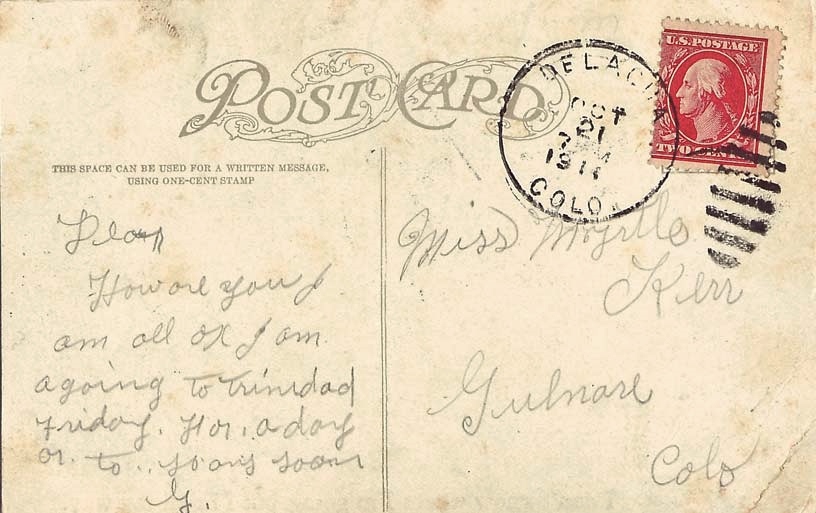 POST CARD
THIS SPACE CAN BE USED FOR A WRITTEN MESSAGE,
USING ONE-CENT STAMP
U.S. POSTAGE
TWO CENTS
DELAGUA
OCT
21
7 PM
COLO.
Dear
How are you I
am all OK I am
agoing to trinidad
Friday. For. a day
or. to.. soon
G.
Miss Myrtle
Kerr
Gulnare
Colo